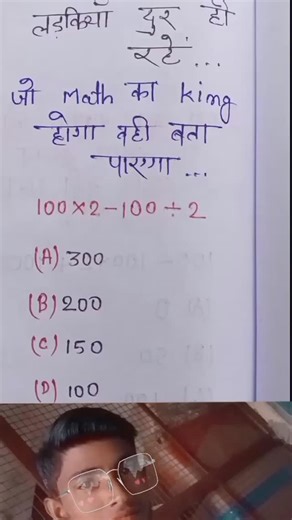 लड़कियाँ दुर हो
रहे...
जो Math का King
होगा वही बता
पाएगा...
100×2-100÷2
(A) 300
(B) 200
(C) 150
(D) 100